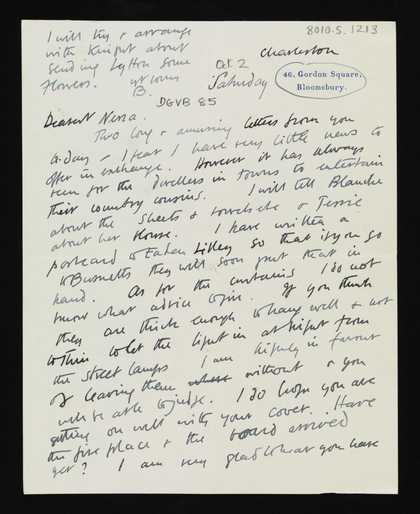 8010.5.1213
I will try & arrange
with Knipur about
sending Lytton some
flowers. yr loving
B.
Oct 2
Charleston
Saturday
46, Gordon Square,
Bloomsbury.
DGVB 85
Dearest Nessa.
Two long & amusing letters from you
to-day & I fear I have very little news to
offer in exchange. However it has always
been for the dwellers in towns to entertain
their country cousins. I will tell Blanche
about the sheets & towels etc & Jessie
about her House. I have written a
postcard to Lilley so that if you go
to Burnetts they will soon put that in
hand. As for the curtains I do not
know what advice to give. If you think
they are thick enough to hang well & not
to thin to let the light in at night from
the street lamps I am highly in favour
of leaving them without & you
will be able to judge. I do hope you are
getting on well with your cover. Have
the fire place & the board arrived
yet? I am very glad to hear you have